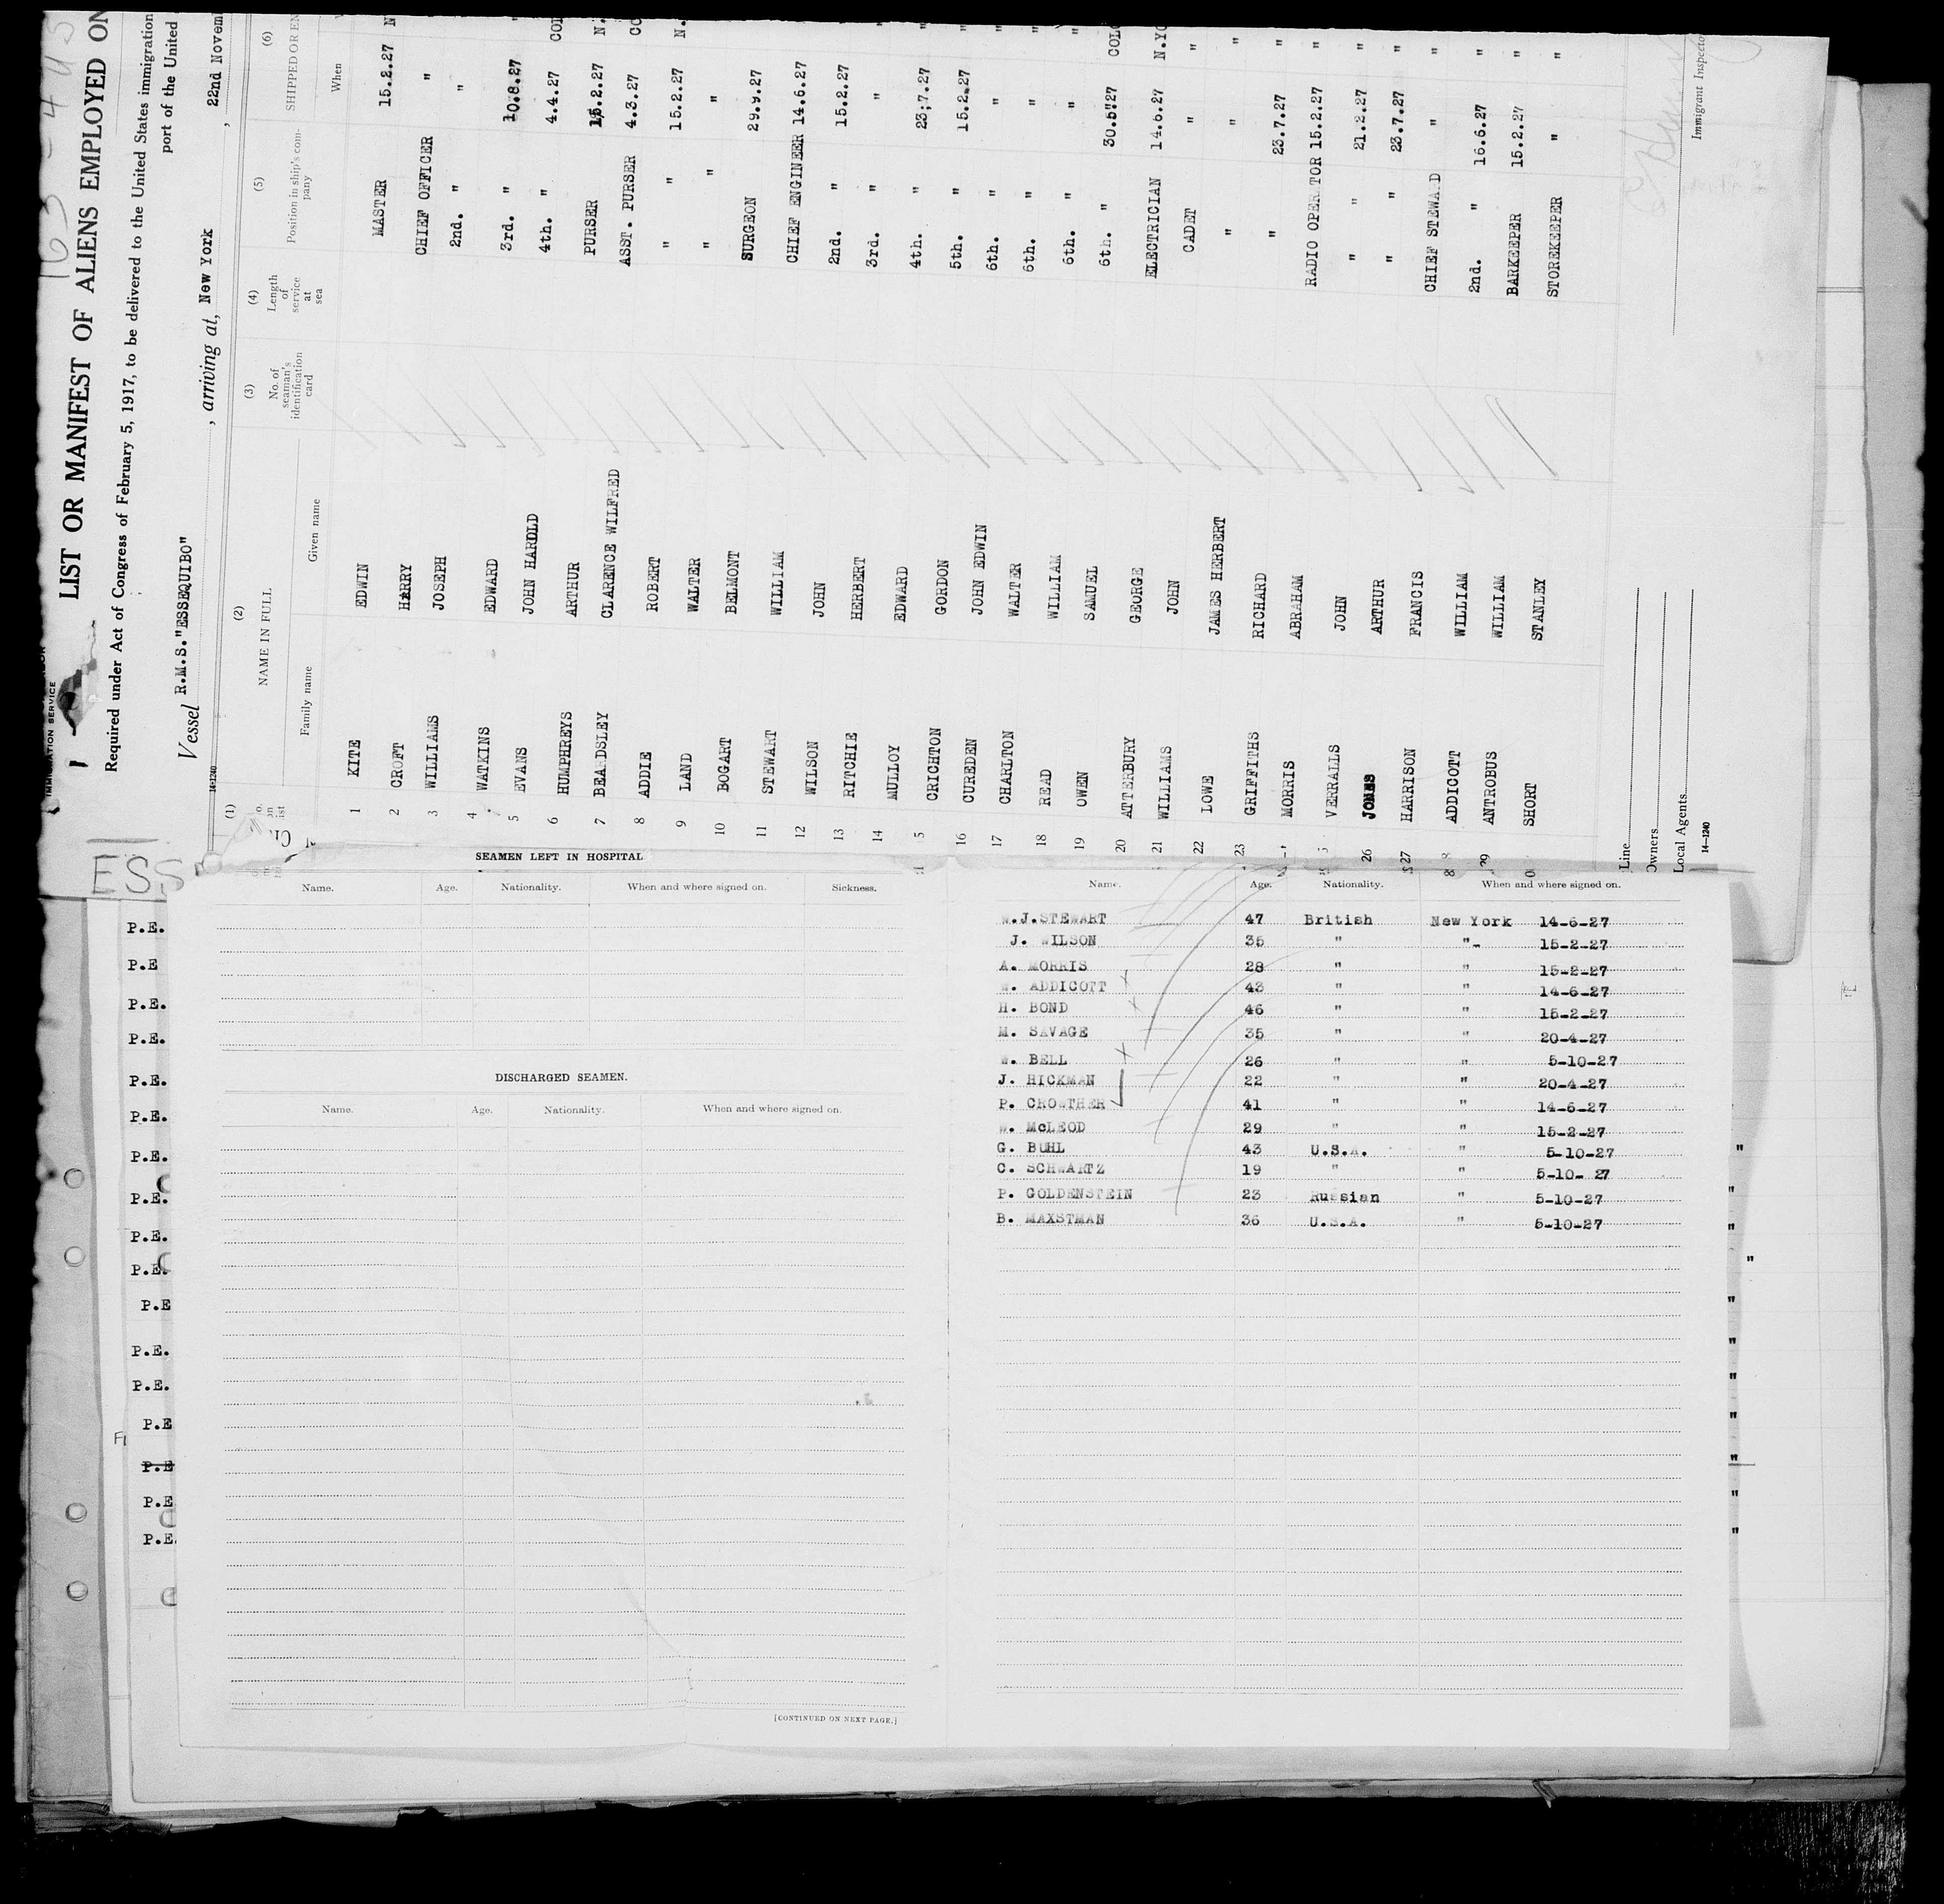 163-
LIST OR MANIFEST OF ALIENS EMPLOYED ON
IMMIGRATION SERVICE
Required under Act of Congress of February 5, 1917, to be delivered to the United States immigration
port of the United
Vessel R.M.S."ESSEQUIBO", arriving at, New York, 22nd Novem
14-1240
(1) (2) (3) (4) (5) (6)
NAME IN FULL No. of seaman's identification card Length of service at sea Position in ship's company SHIPPED OR EN
Family name Given name When
1 KITE EDWIN MASTER 15.2.27 N
2 CROFT HARRY CHIEF OFFICER "
3 WILLIAMS JOSEPH 2nd. " "
4 WATKINS EDWARD 3rd. " 10.8.27 "
5 EVANS JOHN HAROLD 4th. " 4.4.27 COL
6 HUMPHREYS ARTHUR PURSER 15.2.27 N.
7 BEARDSLEY CLARENCE WILFRED ASST. PURSER 4.3.27 CO
8 ADDIE ROBERT " " 15.2.27 N.
9 LAND WALTER " " "
10 BOGART BELMONT SURGEON 29.9.27
11 STEWART WILLIAM CHIEF ENGINEER 14.6.27 "
12 WILSON JOHN 2nd. " 15.2.27 "
13 RITCHIE HERBERT 3rd. " " "
14 MULLOY EDWARD 4th. " 23;7.27 "
5 CRICHTON GORDON 5th. " 15.2.27 "
16 CUREDEN JOHN EDWIN 6th. " " "
17 CHARLTON WALTER 6th. " " "
18 READ WILLIAM 6th. " " "
19 OWEN SAMUEL 6th. " 30.5.27 COLO
20 ATTERBURY GEORGE ELECTRICIAN 14.6.27 N.YO
21 WILLIAMS JOHN CADET " "
22 LOWE JAMES HERBERT " " "
23 GRIFFITHS RICHARD " 23.7.27 "
MORRIS ABRAHAM RADIO OPERATOR 15.2.27 "
VERRALLS JOHN " " 21.2.27 "
26 JONES ARTHUR " " 23.7.27 "
27 HARRISON FRANCIS CHIEF STEWARD " "
8 ADDICOTT WILLIAM 2nd. " 16.6.27 "
29 ANTROBUS WILLIAM BARKEEPER 15.2.27 "
0 SHORT STANLEY STOREKEEPER " "
Line
Owners
Local Agents
14-1240
Immigrant Inspector
ESS
SEAMEN LEFT IN HOSPITAL
Name. Age. Nationality. When and where signed on. Sickness.
DISCHARGED SEAMEN.
Name. Age. Nationality. When and where signed on.
[CONTINUED ON NEXT PAGE.]
Name. Age. Nationality. When and where signed on.
W.J.STEWART 47 British New York 14-6-27
J. WILSON 35 " " 15-2-27
A. MORRIS 28 " " 15-2-27
W. ADDICOTT 43 " " 14-6-27
H. BOND 46 " " 15-2-27
M. SAVAGE 35 " " 20-4-27
W. BELL 26 " " 5-10-27
J. HICKMAN 22 " " 20-4-27
P. CROWTHER 41 " " 14-6-27
W. McLEOD 29 " " 15-2-27
G. BUHL 43 U.S.A. " 5-10-27
C. SCHWARTZ 19 " " 5-10- 27
P. GOLDENSTEIN 23 Russian " 5-10-27
B. MAXSTMAN 36 U.S.A. " 5-10-27
P.E.
P.E
P.E.
P.E.
P.E.
P.E.
P.E.
P.E.
P.E.
P.E.
P.E
P.E.
P.E.
P.E
P.E
P.E
P.E.